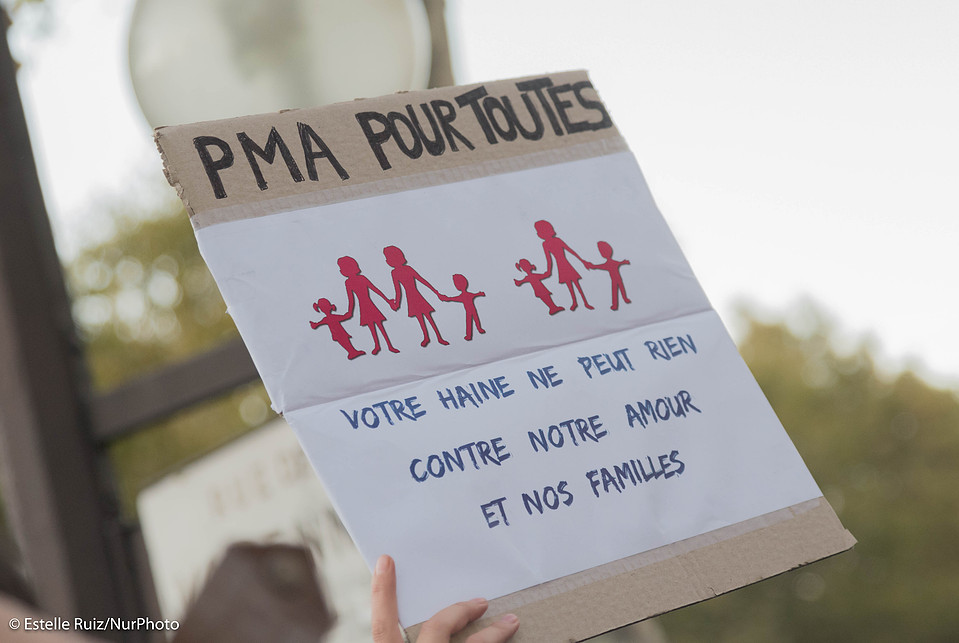 PMA POUR TOUTES
VOTRE HAINE NE PEUT RIEN
CONTRE NOTRE AMOUR
ET NOS FAMILLES
© Estelle Ruiz/NurPhoto